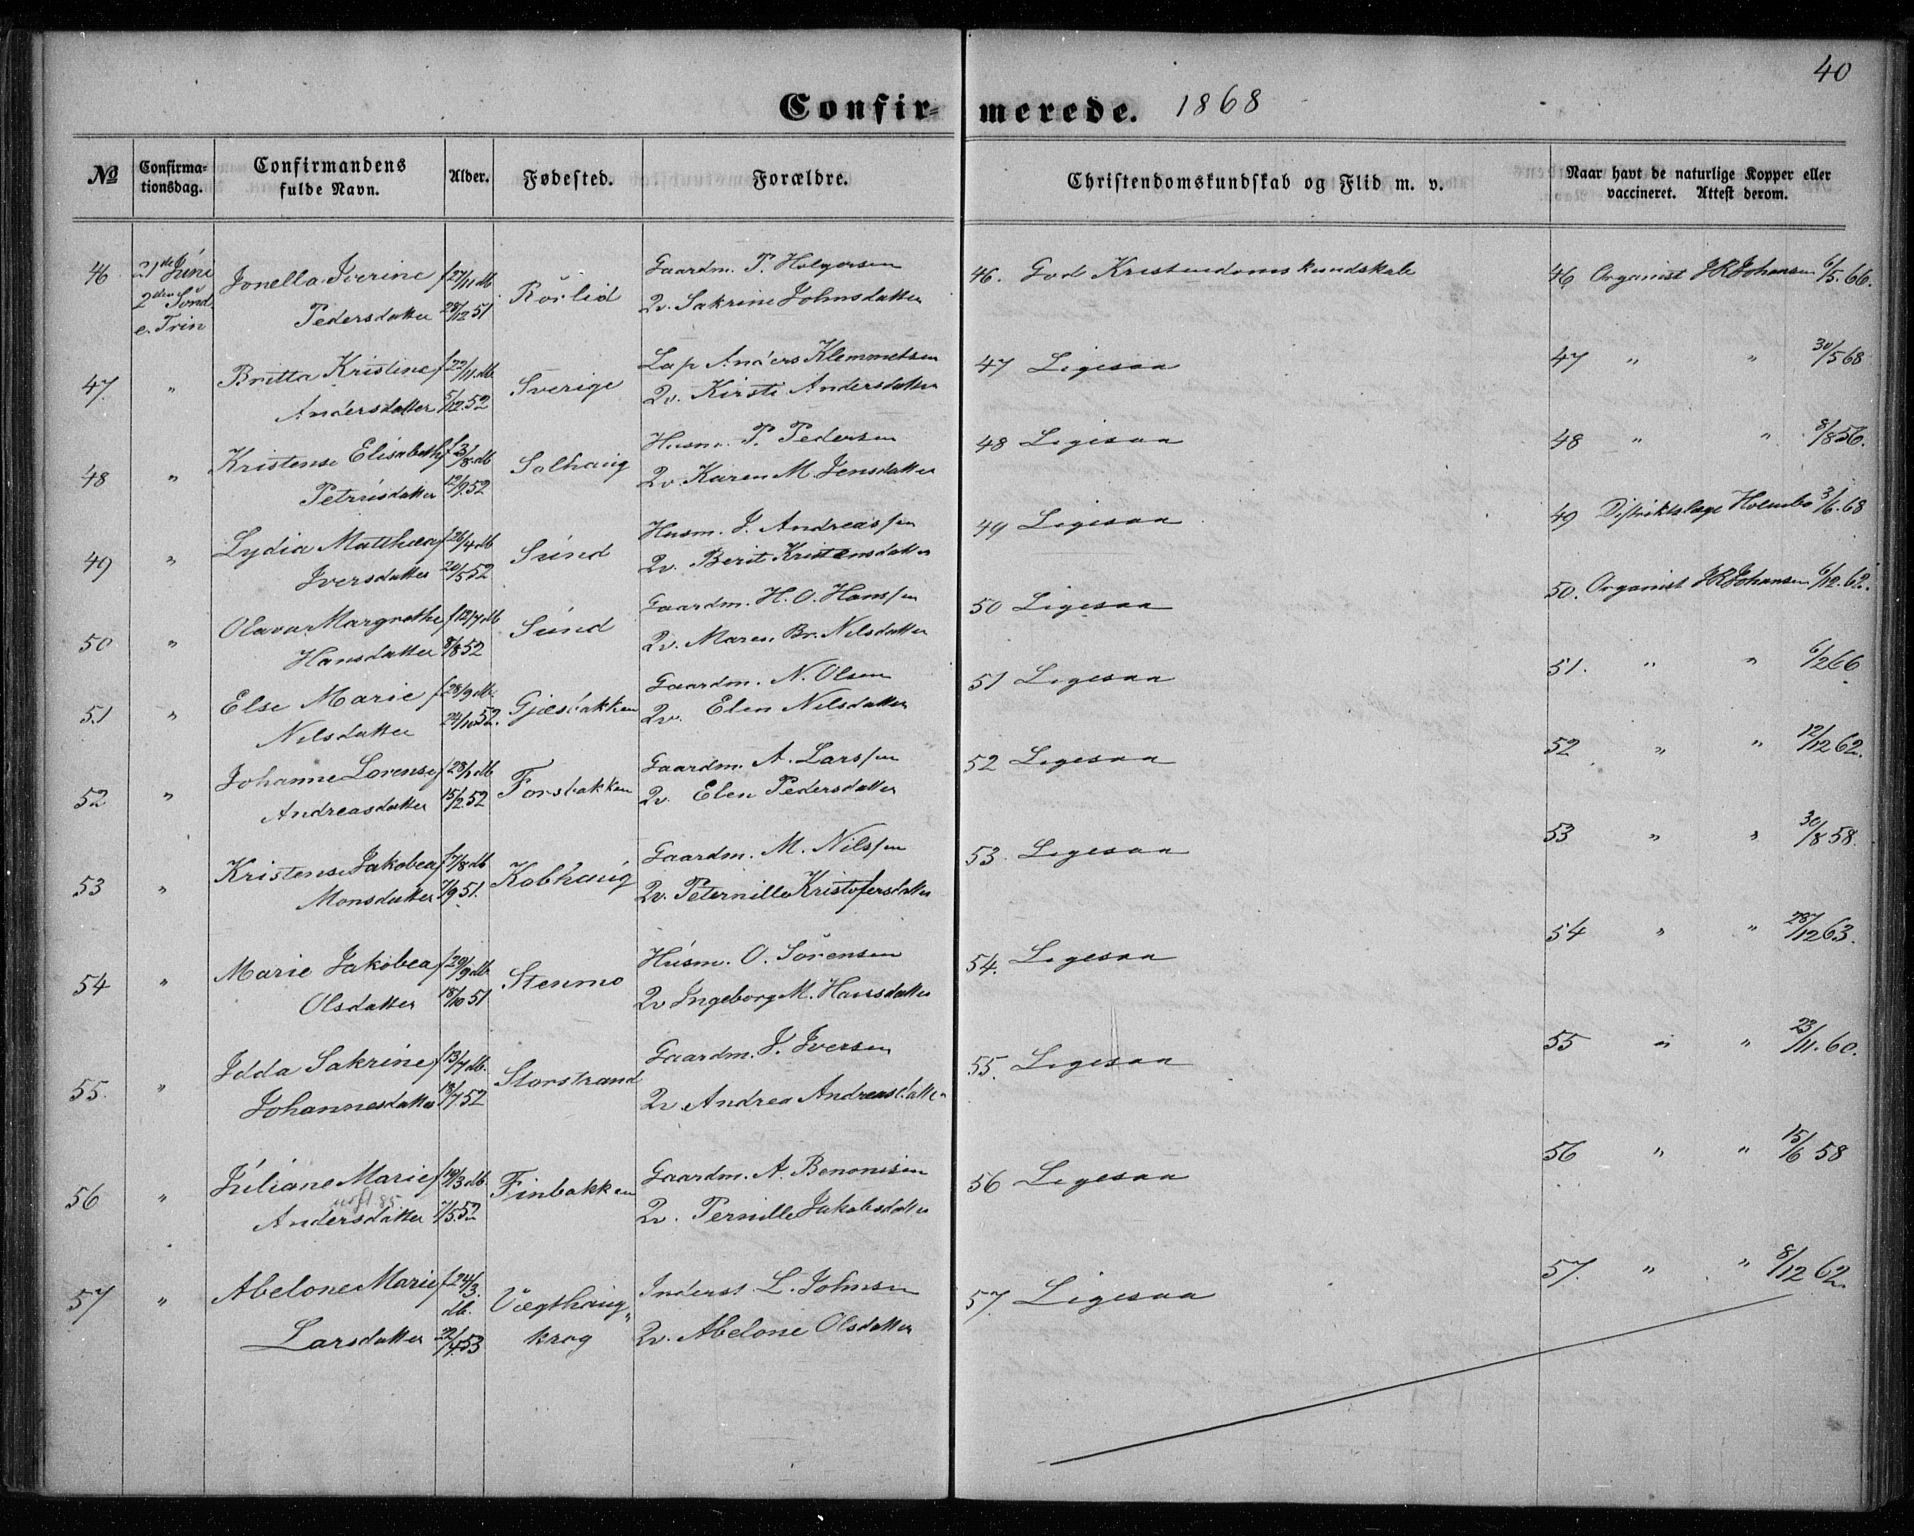 40
Confirmerede. 1868
№ Confirmationsdag. Confirmandens fulde Navn. Alder. Fødested. Forældre. Christendomskundskab og Flid m. v. Naar havt de naturlige Kopper eller vaccineret. Attest derom.
46 21de Júni Jonella Iverine f 27/11 db Rörlid Gaardm. P. Holgersen 46. God Kristendomskundskab 46 Organist JRJohansen 6/5.66.
2den Sönd. e. Trin Pedersdatter 28/12 51 Qv. Sakrine Johnsdatter
47. " Britta Kristine f 22/11. db Sverige Lap Anders Klemmetsen 47 Ligesaa 47 " " 30/5 68
Andersdatter 5/12.52 Qv. Kirsti Andersdatter
48 " Kristense Elisabeth f 3/8. db Solhaúg Husm. P. Pedersen 48 Ligesaa 48 " " 8/8 56.
Petrúsdatter 12/9.52 Qv. Karen M. Jensdatter
49 " Lydia Matthea f 26/4 db Súnd Husm. I. Andreassen 49 Ligesaa 49 Distriktslæge Holmbo 3/6.68
Iversdatter 20/5 52 Qv. Berit Kristensdatter
50 " Olava Margrethe f 12/7 db Súnd Gaardm. H. O. Hanssen 50 Ligesaa 50. Organist JRJohansen 6/12.62.
Hansdatter 8/8 52 Qv. Maren Br. Nilsdatter
51 " Else Marie f 28/9 db. Gjæsbakken Gaardm. N. Olsen 51 Ligesaa 51. " " 6/2 66
Nilsdatter 24/10 52. Qv. Elen Nilsdatter
52 " Johanne Lorense f 23/1 db Forsbakken Gaardm. A. Larssen 52 Ligesaa 52 " " 12/12 62.
Andreasdatter 15/2.52 Qv. Elen Pedersdatter
53 " Kristense Jakobea f 7/8 db Kobhaúg Gaardm. M. Nilssen 53. Ligesaa 53 " " 30/8 58.
Monsdatter 7/9 51. Qv. Peternille Kristofersdatter
54 " Marie Jakobea f 20/9 db Stenmo Húsm. O. Sörensen 54. Ligesaa 54 " " 28/12 63.
Olsdatter 18/10 51 Qv Ingeborg M. Hansdatter
55. " Idda Sakrine f 13/7 db. Storstrand Gaardm. J. Iversen 55. Ligesaa 55 " " 23/11.60.
Johannesdatter 18/7 52 Qv Andrea Andreasdatter
56 " Júliane Marie f 19/3 db. Finbakken Gaardm. A. Benonisen 56 Ligesaa 56 " " 15/6 58
Andersdatter 7/5 52 Qv. Pernille Jakobsdatter
57 " Abelone Marie f 24/3. db. Vægthaug- Inderst L. Johnsen 57. Ligesaa 57. " " 8/12 62.
Larsdatter 22/4 53 krog Qv. Abelone Olsdatter